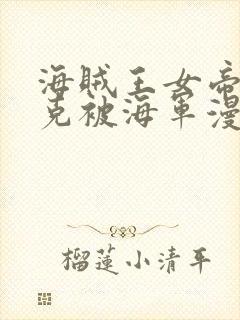 海賊王女帝
克被海軍漫
榴蓮小清平